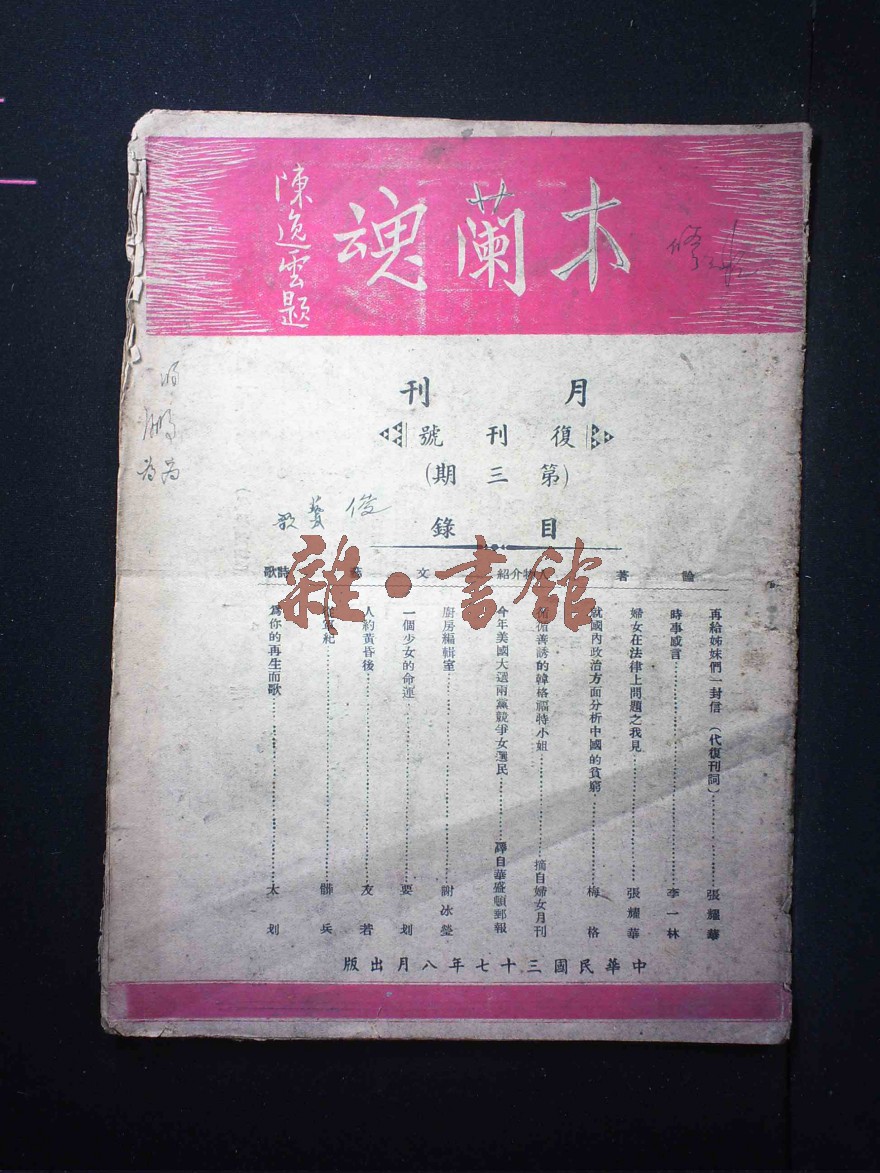 木蘭魂
陳逸雲題
月刊
復刊號
(第三期)
目錄
論著
人物介紹
文藝
詩歌
再給姊妹們一封信(代復刊詞)……張耀華
時事感言……李一林
婦女在法律上問題之我見……張耀華
就國內政治方面分析中國的貧窮……梅格
循循善誘的韓格福特小姐……摘自婦女月刊
今年美國大選兩黨競爭女選民……譯自華盛頓郵報
廚房編輯室……謝冰瑩
一個少女的命運……要划
人約黃昏後……友若
從軍紀……髒兵
為你的再生而歌……太划
中華民國三十七年八月出版
雜·書館